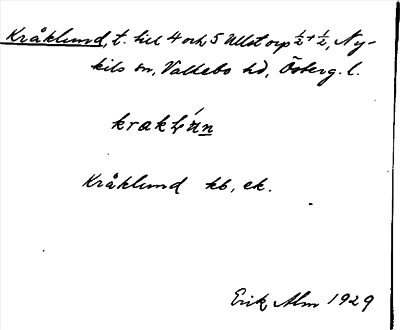 Kråklund, t. till 4 och 5 Ullstorp ½+½, Ny-
kils sn, Valkebo hd, Österg. l.
Kråklund kb, ek.
Erik Alm 1929